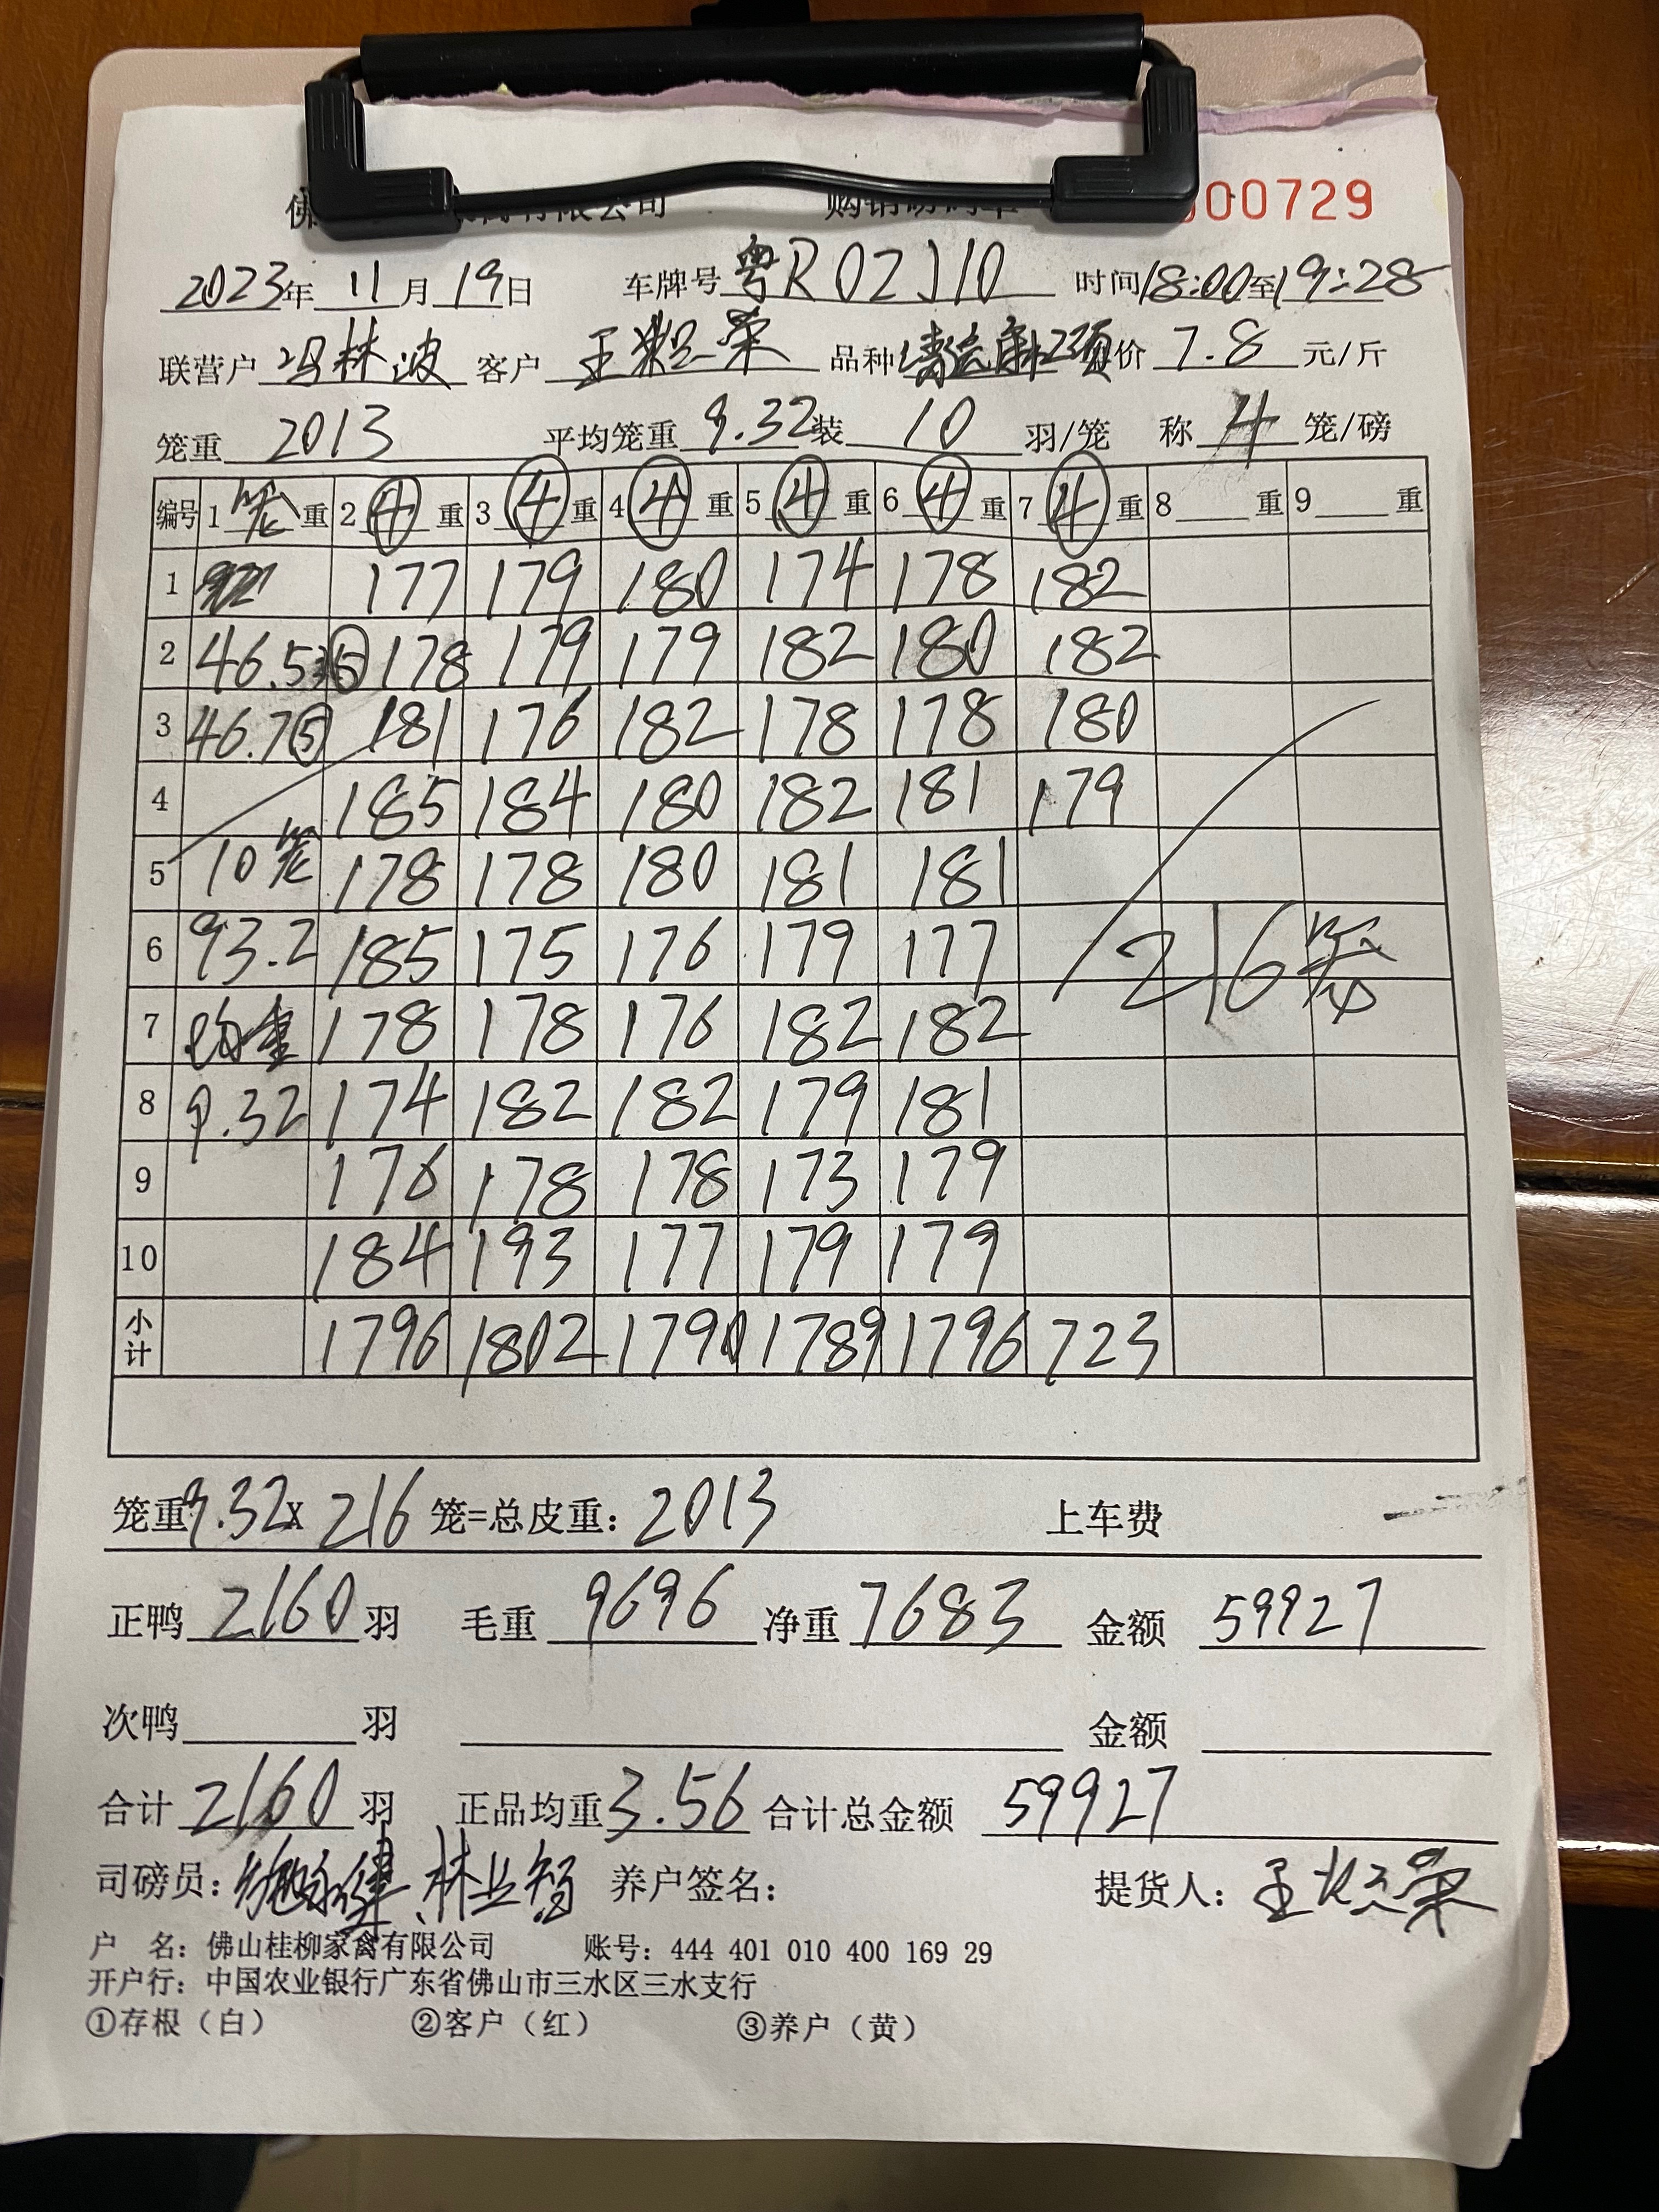 佛 有限公司 购销磅码单 00729
2023年 11月 19日 车牌号 粤R02J10 时间 18:00至19:28
联营户 冯林波 客户 王 荣 品种 价 7.8 元/斤
笼重 2013 平均笼重 9.32 装 10 羽/笼 称 4 笼/磅
编号 1 笼 重 2 4 重 3 4 重 4 4 重 5 4 重 6 4 重 7 4 重 8 重 9 重
1 177 179 180 174 178 182
2 46.5 5 178 179 179 182 180 182
3 46.7 5 181 176 182 178 178 180
4 185 184 180 182 181 179
5 10笼 178 178 180 181 181
6 93.2 185 175 176 179 177 216笼
7 均重 178 178 176 182 182
8 9.32 174 182 182 179 181
9 176 178 178 173 179
10 184 193 177 179 179
小计 1796 1802 1790 1789 1796 723
笼重 9.32 x 216 笼=总皮重: 2013 上车费
正鸭 2160 羽 毛重 9696 净重 7683 金额 59927
次鸭 羽 金额
合计 2160 羽 正品均重 3.56 合计总金额 59927
司磅员: 养户签名: 提货人: 王 荣
户 名: 佛山桂柳家禽有限公司 账号: 444 401 010 400 169 29
开户行: 中国农业银行广东省佛山市三水区三水支行
①存根（白） ②客户（红） ③养户（黄）